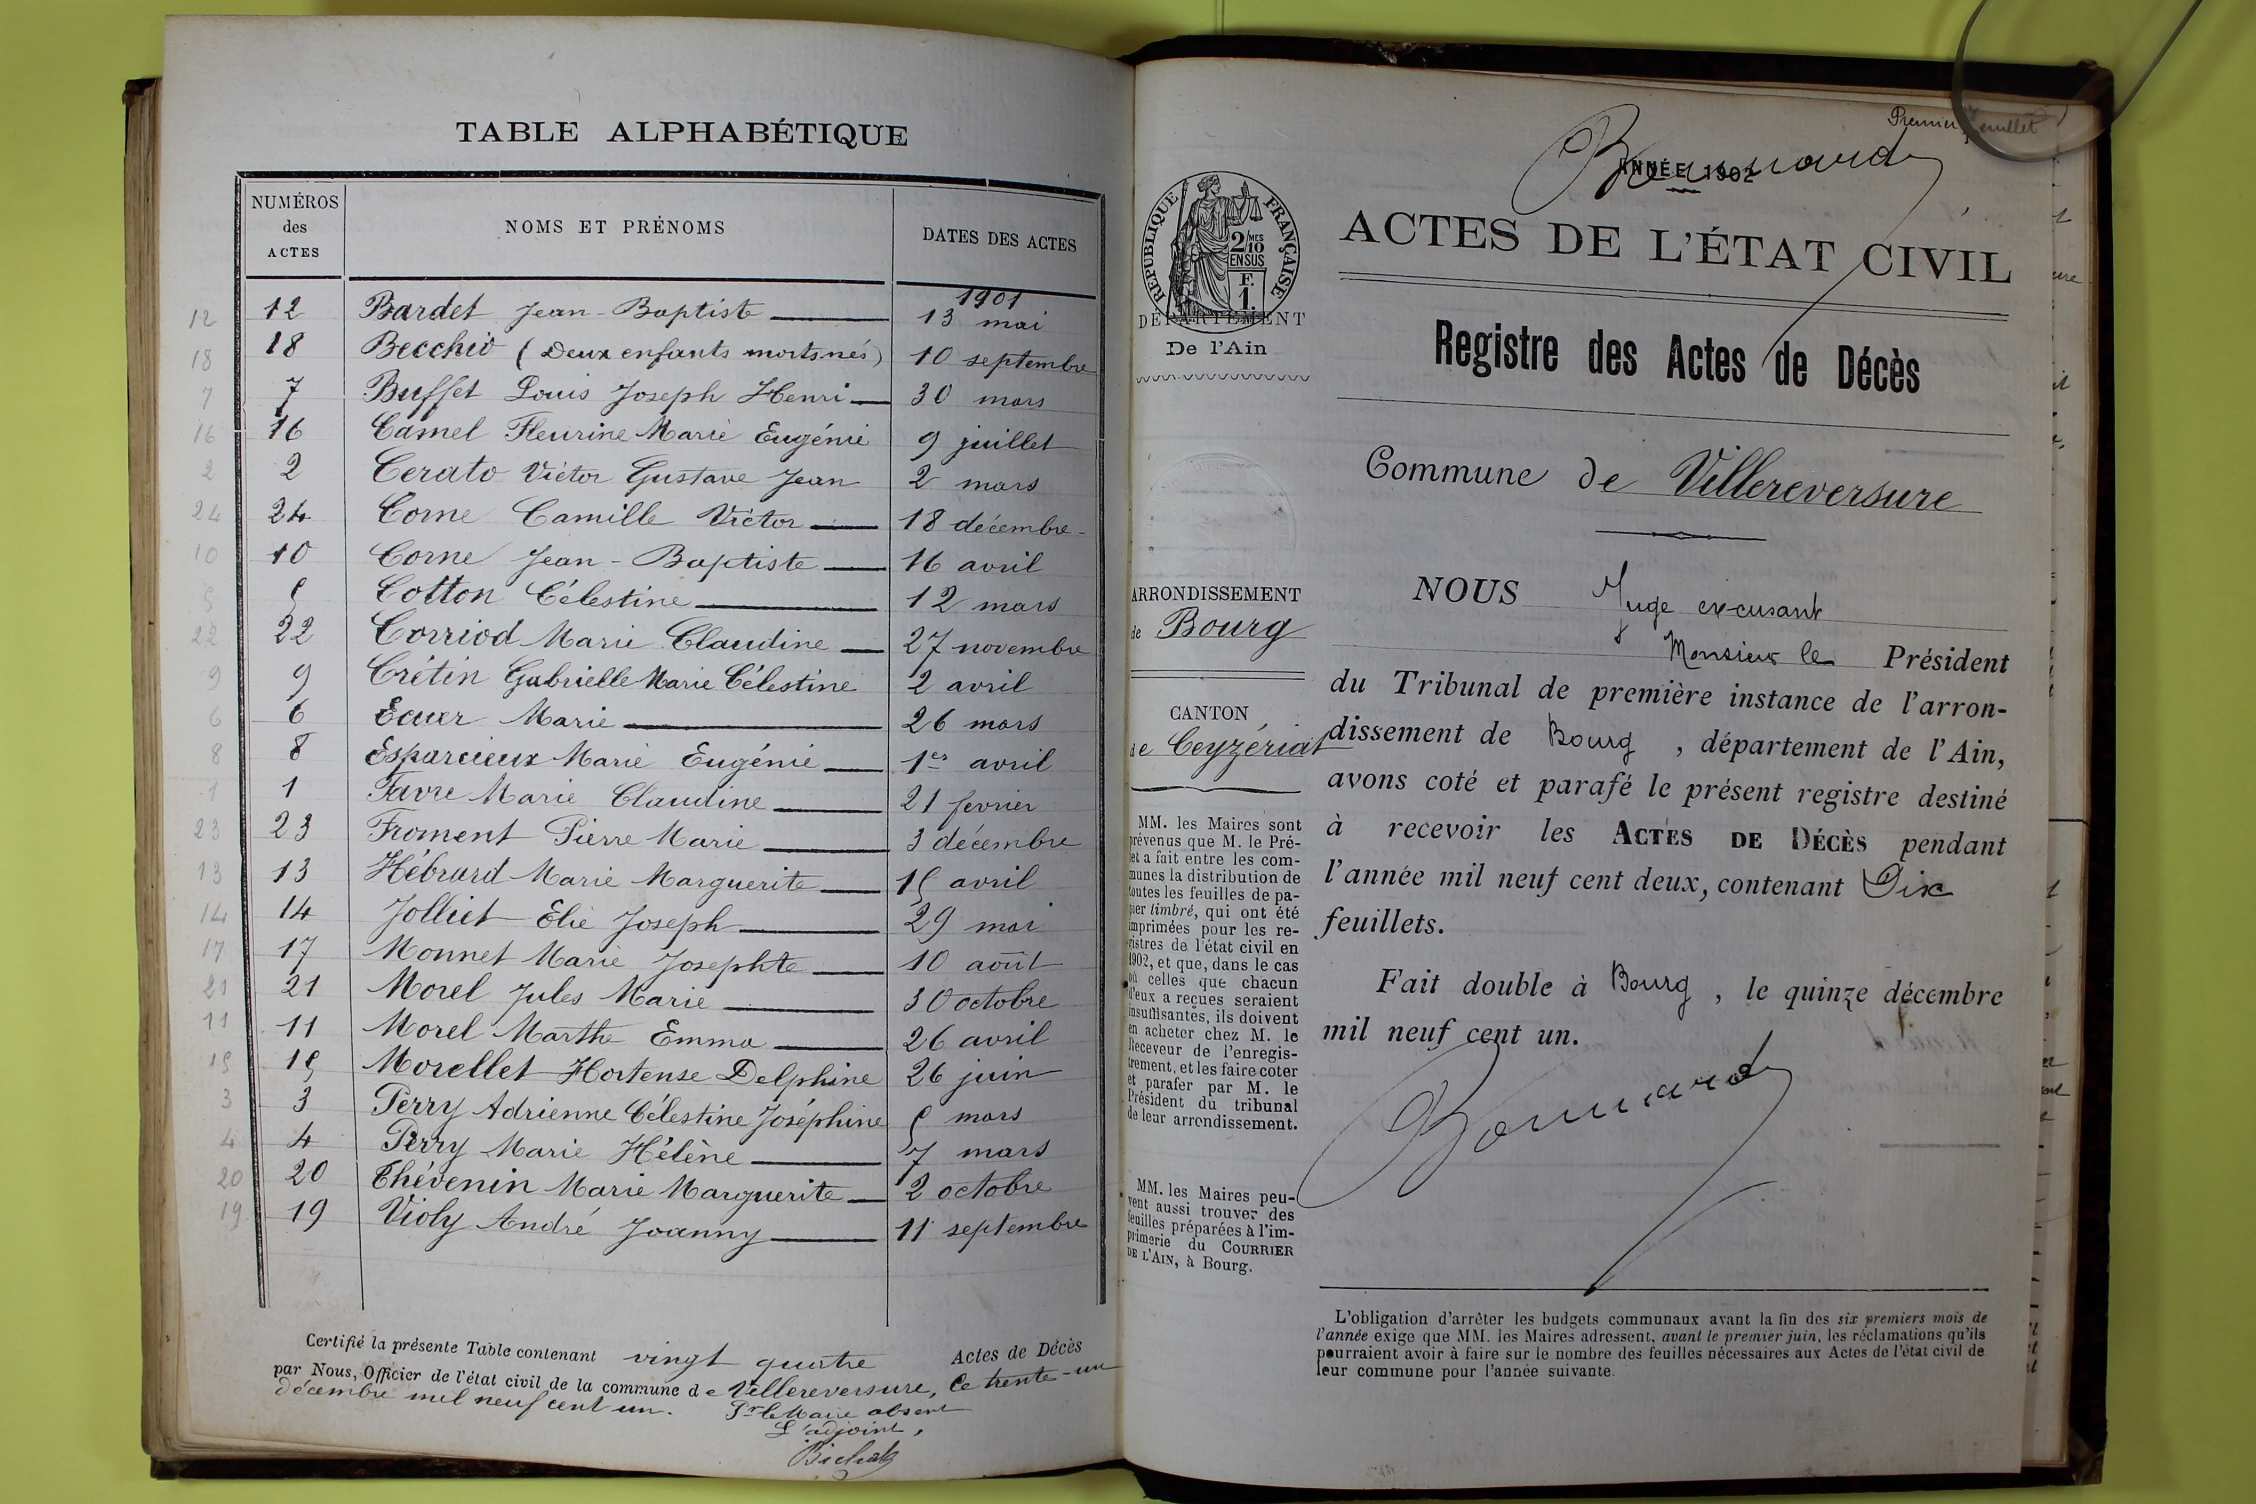 TABLE ALPHABÉTIQUE
NUMÉROS
des
ACTES
NOMS ET PRÉNOMS
DATES DES ACTES
1901
12 12 Bardet Jean-Baptiste 13 mai
18 18 Becchio (Deux enfants morts-nés) 10 septembre
7 7 Buffet Louis Joseph Henri 30 mars
16 16 Camel Fleurine Marie Eugénie 9 juillet
2 2 Cerato Victor Gustave Jean 2 mars
24 24 Corne Camille Victor 18 décembre
10 10 Corne Jean-Baptiste 16 avril
5 5 Cotton Célestine 12 mars
22 22 Corriod Marie Claudine 27 novembre
9 9 Crétin Gabrielle Marie Célestine 2 avril
6 6 Ecuer Marie 26 mars
8 8 Esparcieux Marie Eugénie 1er avril
1 1 Favre Marie Claudine 21 février
23 23 Froment Pierre Marie 3 décembre
13 13 Hébrard Marie Marguerite 15 avril
14 14 Jolliet Elie Joseph 29 mai
17 17 Monnet Marie Josephte 10 août
21 21 Morel Jules Marie 30 octobre
11 11 Morel Marthe Emma 26 avril
15 15 Morellet Hortense Delphine 26 juin
3 3 Perry Adrienne Célestine Joséphine 5 mars
4 4 Perry Marie Hélène 7 mars
20 20 Thévenin Marie Marguerite 2 octobre
19 19 Violy André Joanny 11 septembre
Certifié la présente Table contenant vingt quatre Actes de Décès
par Nous, Officier de l'état civil de la commune de Villereversure, le trente-un
décembre mil neuf cent un. Pr le Maire absent
L'adjoint,
Premier feuillet
Bonnard
ANNÉE 1902
ACTES DE L'ÉTAT CIVIL
RÉPUBLIQUE FRANÇAISE
2/10 MES
EN SUS
F.
1.
DÉPARTEMENT
De l'Ain
Registre des Actes de Décès
Commune de Villereversure
ARRONDISSEMENT
de Bourg
CANTON
de Ceyzériat
MM. les Maires sont
prévenus que M. le Pré-
fet a fait entre les com-
munes la distribution de
toutes les feuilles de pa-
pier timbré, qui ont été
imprimées pour les re-
gistres de l'état civil en
1902, et que, dans le cas
où celles que chacun
d'eux a reçues seraient
insuffisantes, ils doivent
en acheter chez M. le
Receveur de l'enregis-
trement, et les faire coter
et parafer par M. le
Président du tribunal
de leur arrondissement.
MM. les Maires peu-
vent aussi trouver des
feuilles préparées à l'im-
primerie du COURRIER
DE L'AIN, à Bourg.
NOUS Juge excusant
Monsieur le Président
du Tribunal de première instance de l'arron-
dissement de Bourg, département de l'Ain,
avons coté et parafé le présent registre destiné
à recevoir les ACTES DE DÉCÈS pendant
l'année mil neuf cent deux, contenant Dix
feuillets.
Fait double à Bourg, le quinze décembre
mil neuf cent un.
Bonnard
L'obligation d'arrêter les budgets communaux avant la fin des six premiers mois de
l'année exige que MM. les Maires adressent, avant le premier juin, les réclamations qu'ils
pourraient avoir à faire sur le nombre des feuilles nécessaires aux Actes de l'état civil de
leur commune pour l'année suivante.